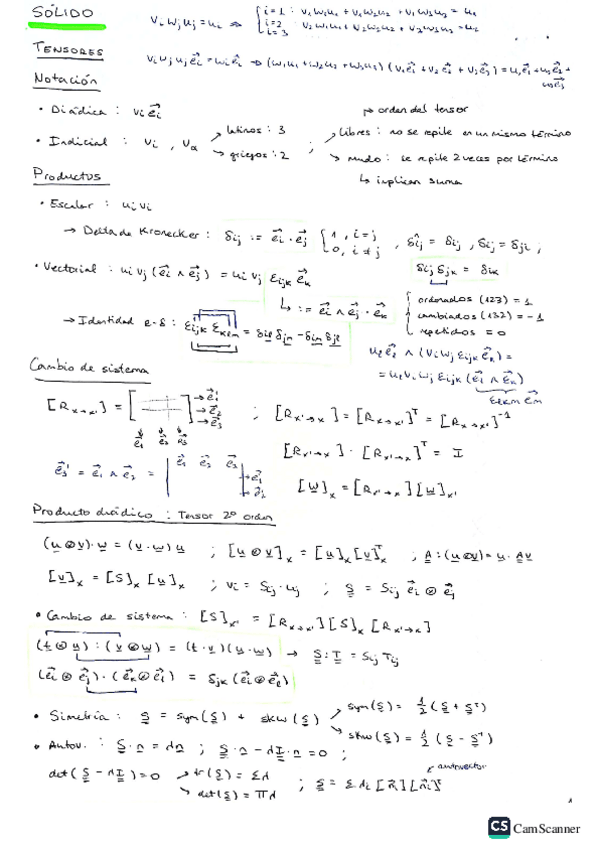 SÓLIDO
v_i w_j u_j = u_i ⇒ { i=1 : v_1 w_1 u_1 + v_1 w_2 u_2 + v_1 w_3 u_3 = u_1
i=2
i=3
TENSORES
v_i w_j u_j e⃗_i = u_i e⃗_i ⇒ (w_1 u_1 + w_2 u_2 + w_3 u_3) (v_1 e⃗_1 + v_2 e⃗_2 + v_3 e⃗_3) = u_1 e⃗_1 + u_2 e⃗_2 + u_3 e⃗_3
Notación
• Diádica : v_i e⃗_i
→ orden del tensor
• Indicial : v_i , v_α → latinos : 3 ; → libres : no se repite en un mismo término
→ griegos : 2 → mudo : se repite 2 veces por término
↳ implican suma
Productos
• Escalar : u_i v_i
→ Delta de Kronecker : δ_ij := e⃗_i · e⃗_j { 1 , i=j
0 , i≠j , δ_ij = δ_ji ;
• Vectorial : u_i v_j (e⃗_i ∧ e⃗_j) = u_i v_j ε_ijk e⃗_k
δ_ij δ_jk = δ_ik
↳ := e⃗_i ∧ e⃗_j · e⃗_k { ordenados (123) = 1
cambiados (132) = -1
repetidos = 0
→ Identidad e-δ : ε_ijk ε_kem = δ_ie δ_jm - δ_im δ_je
u_l e⃗_l ∧ (v_i w_j ε_ijk e⃗_k) =
= u_l v_i w_j ε_ijk (e⃗_l ∧ e⃗_k)
ε_lkm e⃗_m
Cambio de sistema
[R_x→x'] = [ ] → e⃗_1' → e⃗_2' → e⃗_3' ; [R_x'→x] = [R_x→x']^T = [R_x→x']^-1
e⃗_1 e⃗_2 e⃗_3
[R_x'→x] · [R_x'→x]^T = I
e⃗_3' = e⃗_1 ∧ e⃗_2 = | e⃗_1 e⃗_2 e⃗_3
[w]_x = [R_x'→x] [w]_x'
Producto diádico : Tensor 2º orden
(u ⊗ v) · w = (v · w) u ; [u ⊗ v]_x = [u]_x [v]_x^T ; A : (u ⊗ v) = u · A v
[v]_x = [S]_x [u]_x ; v_i = S_ij · u_j ; S = S_ij e⃗_i ⊗ e⃗_j
• Cambio de sistema : [S]_x' = [R_x→x'] [S]_x [R_x'→x]
(t ⊗ u) : (v ⊗ w) = (t · v) (u · w) → S : T = S_ij T_ij
(e⃗_i ⊗ e⃗_j) · (e⃗_k ⊗ e⃗_l) = δ_jk (e⃗_i ⊗ e⃗_l)
• Simetría : S = sym(S) + skw(S) → sym(S) = 1/2 (S + S^T)
→ skw(S) = 1/2 (S - S^T)
• Autov. : S · n = λn ; S · n - λI · n = 0 ;
autovector
det(S - λI) = 0 → tr(S) = Σλ ; S = Σ λ_i [n⃗_i] [n⃗_i]^T
→ det(S) = Πλ
1
CS CamScanner